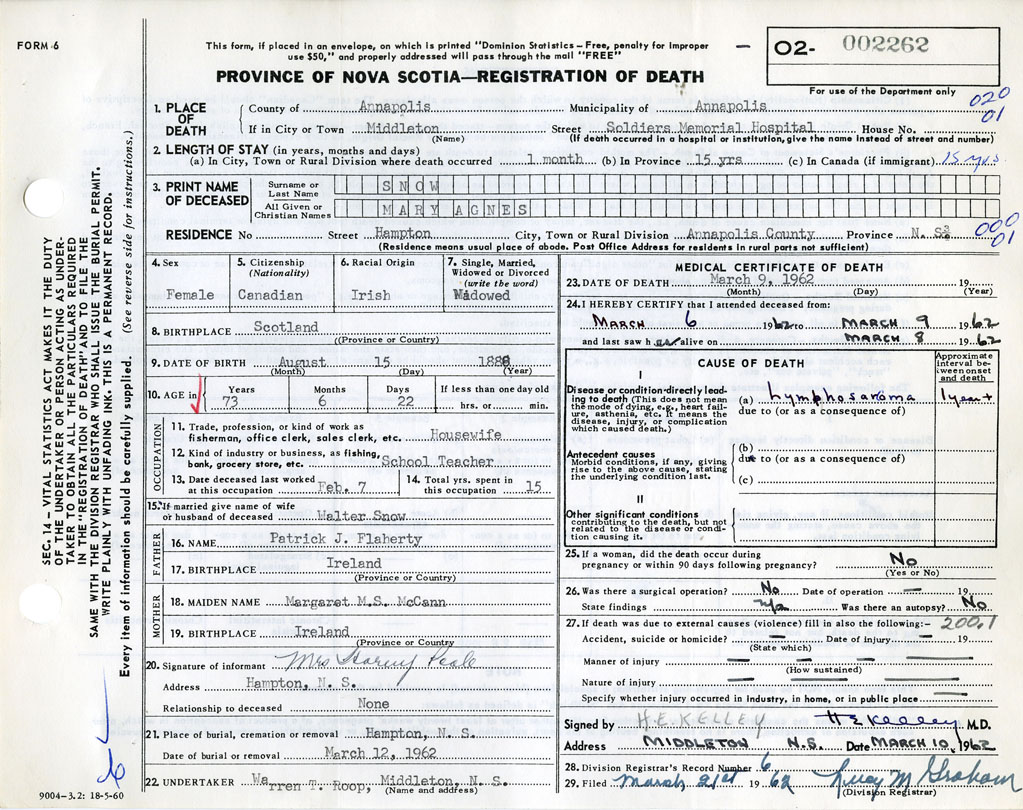 FORM 6
This form, if placed in an envelope, on which is printed "Dominion Statistics – Free, penalty for improper
use $50," and properly addressed will pass through the mail "FREE"
PROVINCE OF NOVA SCOTIA—REGISTRATION OF DEATH
02- 002262
For use of the Department only
020
01
1. PLACE OF DEATH
County of Annapolis Municipality of Annapolis
If in City or Town Middleton Street Soldiers Memorial Hospital House No.
(Name) (If death occurred in a hospital or institution, give the name instead of street and number)
2. LENGTH OF STAY (in years, months and days)
(a) In City, Town or Rural Division where death occurred 1 month (b) In Province 15 yrs (c) In Canada (if immigrant) 15 yrs.
3. PRINT NAME OF DECEASED
Surname or Last Name SNOW
All Given or Christian Names MARY AGNES
000
01
RESIDENCE No Street Hampton City, Town or Rural Division Annapolis County Province N. S.
(Residence means usual place of abode. Post Office Address for residents in rural parts not sufficient)
4. Sex
Female
5. Citizenship
(Nationality)
Canadian
6. Racial Origin
Irish
7. Single, Married,
Widowed or Divorced
(write the word)
Widowed
8. BIRTHPLACE Scotland
(Province or Country)
9. DATE OF BIRTH August 15 1888
(Month) (Day) (Year)
10. AGE in
Years Months Days If less than one day old
73 6 22 hrs. or min.
OCCUPATION
11. Trade, profession, or kind of work as
fisherman, office clerk, sales clerk, etc. Housewife
12. Kind of industry or business, as fishing,
bank, grocery store, etc. School Teacher
13. Date deceased last worked
at this occupation Feb. 7
14. Total yrs. spent in
this occupation 15
15. If married give name of wife
or husband of deceased Walter Snow
FATHER
16. NAME Patrick J. Flaherty
17. BIRTHPLACE Ireland
(Province or Country)
MOTHER
18. MAIDEN NAME Margaret M.S. McCann
19. BIRTHPLACE Ireland
(Province or Country
20. Signature of informant Mrs Harvey
Address Hampton, N. S.
Relationship to deceased None
21. Place of burial, cremation or removal Hampton, N. S.
Date of burial or removal March 12, 1962
22. UNDERTAKER Warren T. Roop, Middleton, N. S.
(Name and address)
MEDICAL CERTIFICATE OF DEATH
23. DATE OF DEATH March 9, 1962 19
(Month) (Day) (Year)
24. I HEREBY CERTIFY that I attended deceased from:
MARCH 6 1962 to MARCH 9 1962
and last saw her alive on MARCH 8 1962
CAUSE OF DEATH
Approximate
interval be-
tween onset
and death
I
Disease or condition directly lead-
ing to death (This does not mean
the mode of dying, e.g., heart fail-
ure, asthenia, etc. It means the
disease, injury, or complication
which caused death.)
(a) Lymphosarcoma 1 year +
due to (or as a consequence of)
Antecedent causes
Morbid conditions, if any, giving
rise to the above cause, stating
the underlying condition last.
(b)
due to (or as a consequence of)
(c)
II
Other significant conditions
contributing to the death, but not
related to the disease or condi-
tion causing it.
25. If a woman, did the death occur during
pregnancy or within 90 days following pregnancy? No
(Yes or No)
26. Was there a surgical operation? No Date of operation — 19
State findings n/a Was there an autopsy? No
27. If death was due to external causes (violence) fill in also the following:- 200.1
Accident, suicide or homicide? — Date of injury — 19
(State which)
Manner of injury
(How sustained)
Nature of injury
Specify whether injury occurred in Industry, in home, or in public place
Signed by H.E. KELLEY H E Kelley M.D.
Address MIDDLETON N.S. Date MARCH 10, 1962
28. Division Registrar's Record Number 6
29. Filed March 21st 1962 Lucy M Graham
(Division Registrar)
SEC. 14 – VITAL STATISTICS ACT MAKES IT THE DUTY
OF THE UNDERTAKER OR PERSON ACTING AS UNDER-
TAKER TO OBTAIN ALL THE PARTICULARS REQUIRED
IN THE "REGISTRATION OF DEATH" AND TO FILE THE
SAME WITH THE DIVISION REGISTRAR WHO SHALL ISSUE THE BURIAL PERMIT.
WRITE PLAINLY WITH UNFADING INK. THIS IS A PERMANENT RECORD.
Every item of information should be carefully supplied. (See reverse side for instructions.)
9004–3.2: 18-5-60